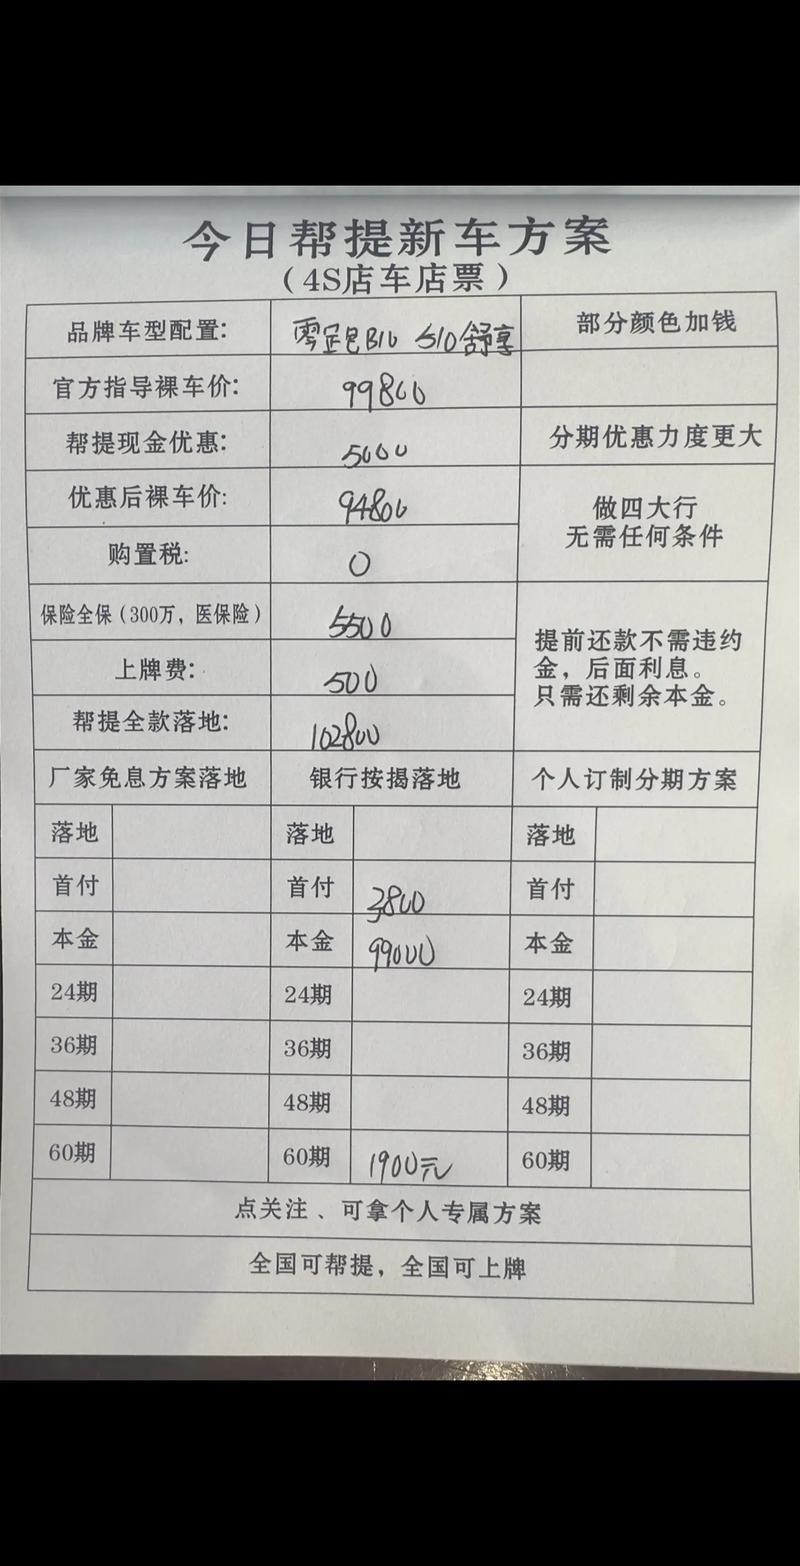 今日帮提新车方案
（4S店车店票）
品牌车型配置: 零跑B10 510舒享 部分颜色加钱
官方指导裸车价: 99800
帮提现金优惠: 5000 分期优惠力度更大
优惠后裸车价: 94800 做四大行
无需任何条件
购置税: 0
保险全保（300万，医保险） 5500 提前还款不需违约
金，后面利息。
只需还剩余本金。
上牌费: 500
帮提全款落地: 102800
厂家免息方案落地 银行按揭落地 个人订制分期方案
落地 落地 落地
首付 首付 3800 首付
本金 本金 99000 本金
24期 24期 24期
36期 36期 36期
48期 48期 48期
60期 60期 1900元 60期
点关注、可拿个人专属方案
全国可帮提，全国可上牌